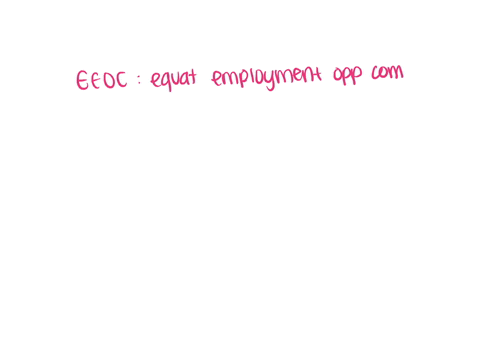 EEOC : equat employment opp com